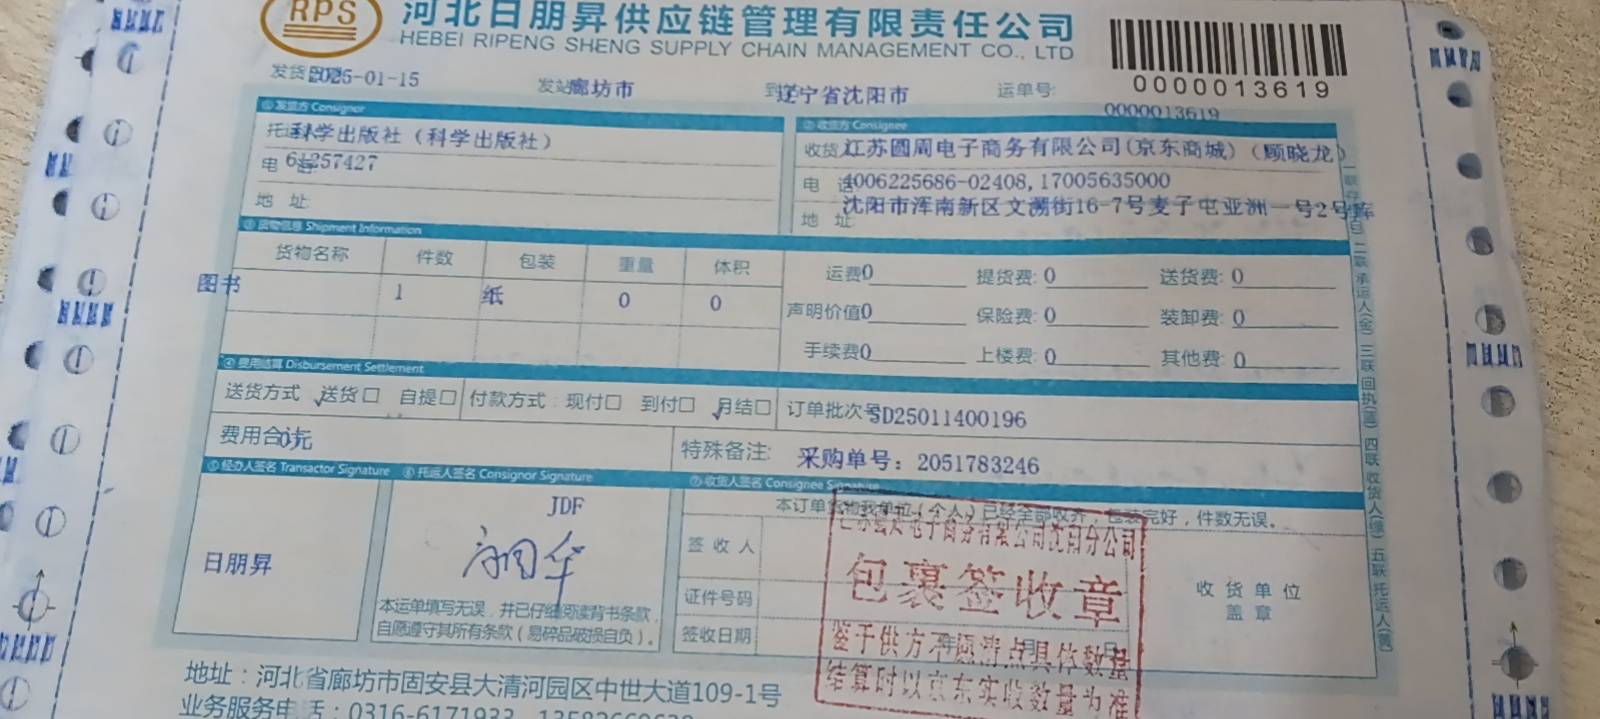 RPS
河北日朋昇供应链管理有限责任公司
HEBEI RIPENG SHENG SUPPLY CHAIN MANAGEMENT CO., LTD
0000013619
发货 2025-01-15 发站 廊坊市 到 辽宁省沈阳市 运单号:
0000013619
①发货方 Consignor
②收货方 Consignee
托运 科学出版社（科学出版社）
收货 江苏圆周电子商务有限公司(京东商城)（顾晓龙）
电 话 61257427
电 话 4006225686-02408,17005635000
地 址:
地 址: 沈阳市浑南新区文溯街16-7号麦子屯亚洲一号2号库
③货物信息 Shipment Information
货物名称 件数 包装 重量 体积
运费 0 提货费: 0 送货费: 0
图书 1 纸 0 0
声明价值 0 保险费: 0 装卸费: 0
手续费 0 上楼费: 0 其他费: 0
④费用结算 Disbursement Settlement
送货方式 ✓送货□ 自提□ 付款方式: 现付□ 到付□ ✓月结□ 订单批次号 SD25011400196
费用合计 0元
特殊备注: 采购单号：2051783246
⑤经办人签名 Transactor Signature
⑥托运人签名 Consignor Signature
⑦收货人签名 Consignee Signature
日朋昇
JDF
本运单填写无误，并已仔细阅读背书条款，
自愿遵守其所有条款（易碎品破损自负）。
本订单货物我单位（个人）已经全部收齐，包装完好，件数无误。
签收人
证件号码
签收日期 年 月 日
收货单位
盖章
江苏圆周电子商务有限公司沈阳分公司
包裹签收章
鉴于供方不愿清点具体数量
结算时以京东实收数量为准
二联 承运人(金) 三联 回执(蓝) 四联 收货人(绿) 五联 托运人(黄)
地址：河北省廊坊市固安县大清河园区中世大道109-1号
业务服务电话：0316-6171933